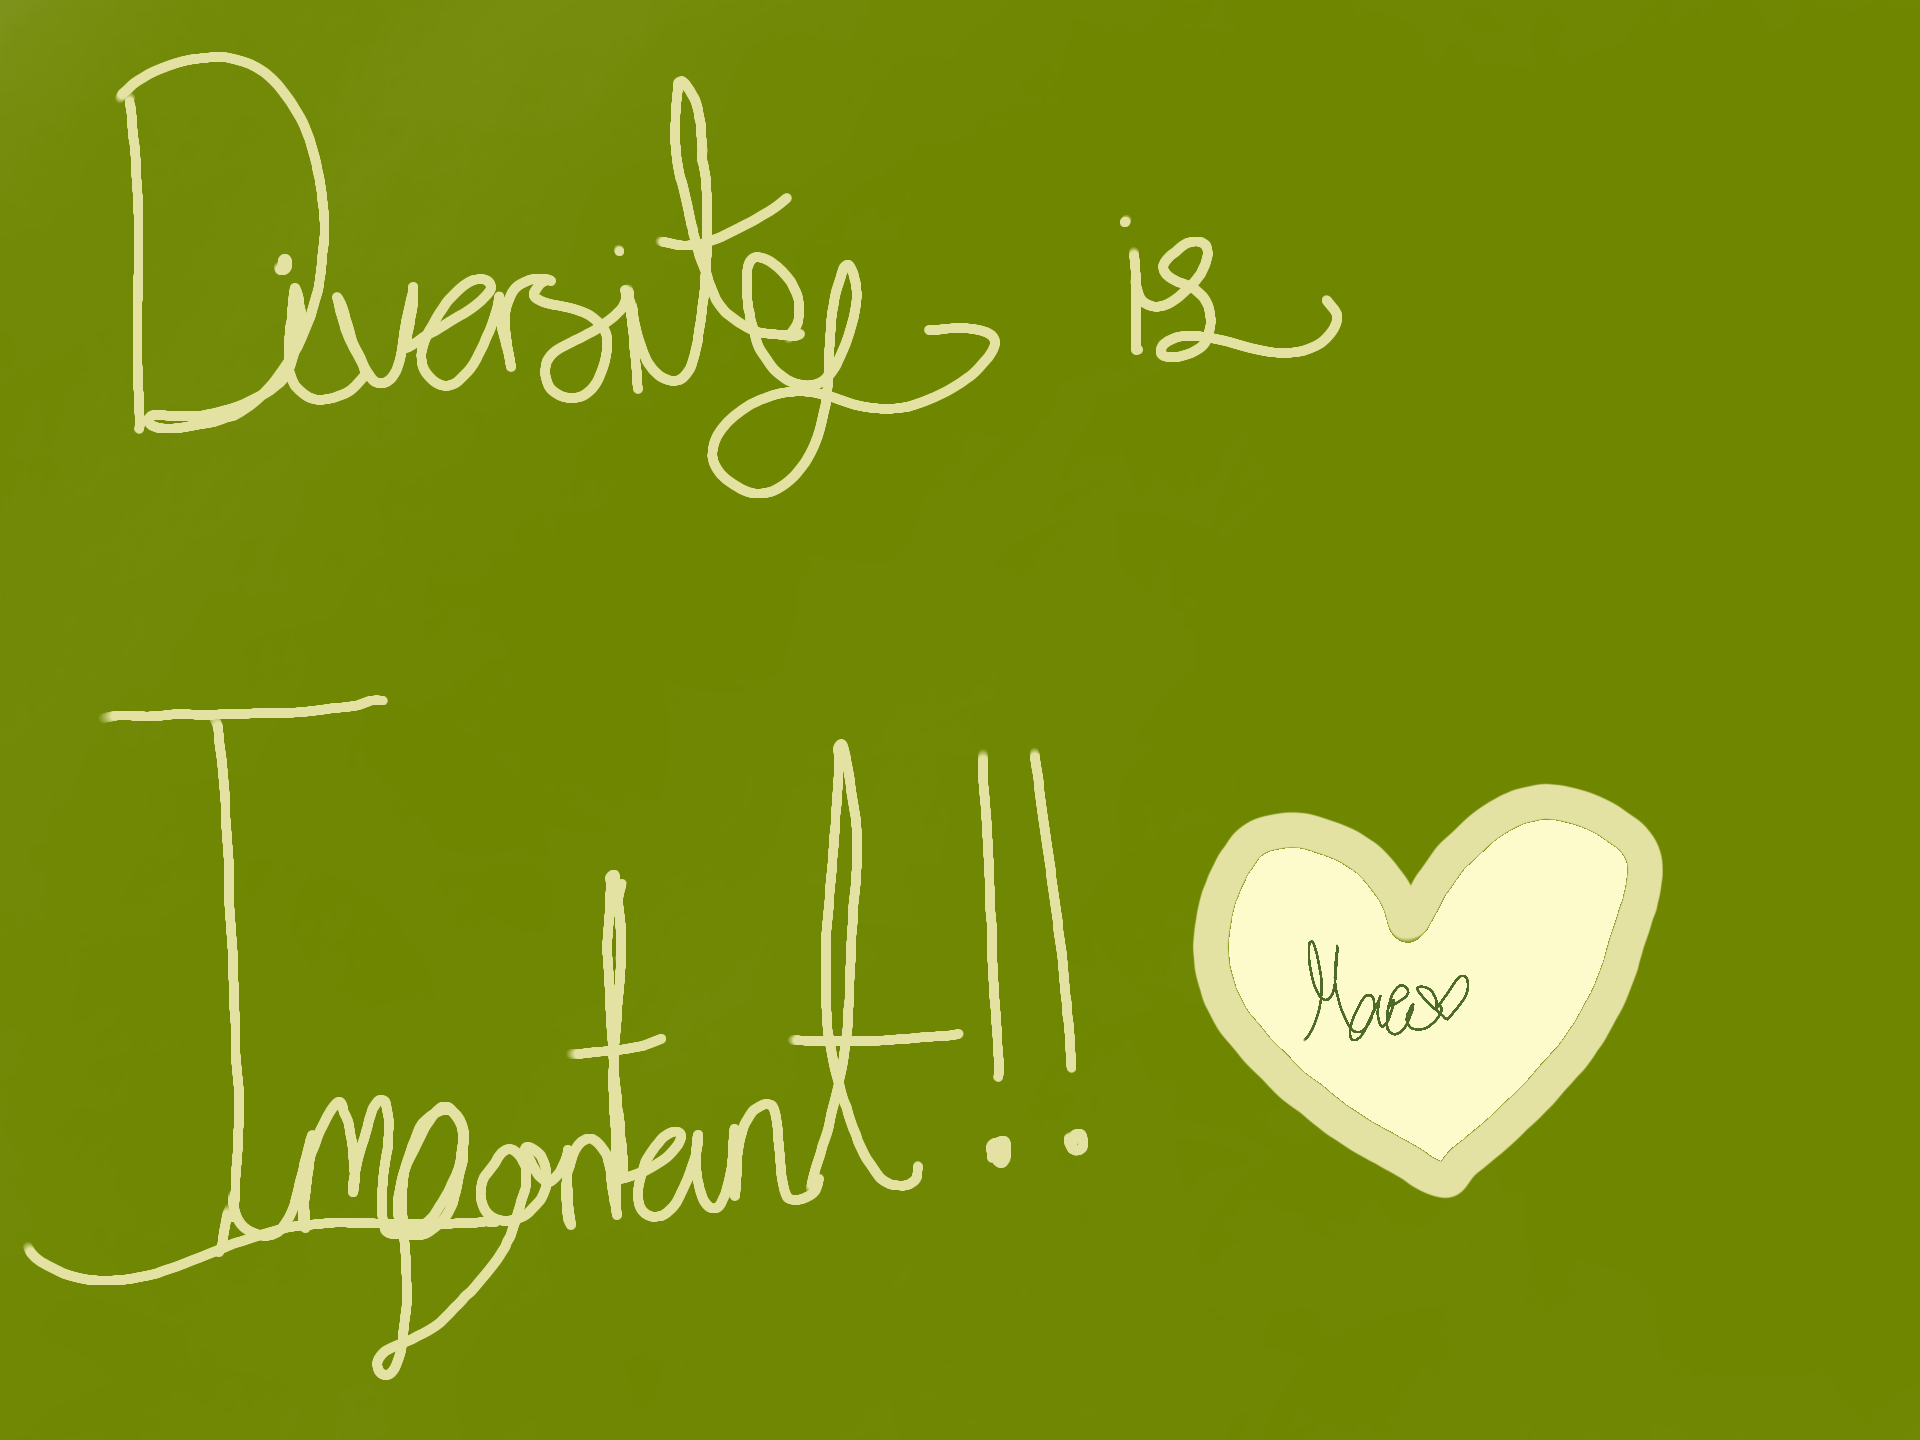 Diversity is
Important!!